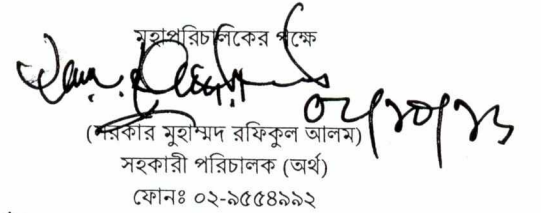 মহাপরিচালকের পক্ষে
০২/১০/১৩
(সরকার মুহাম্মদ রফিকুল আলম)
সহকারী পরিচালক (অর্থ)
ফোনঃ ০২-৯৫৫৪৯৯২